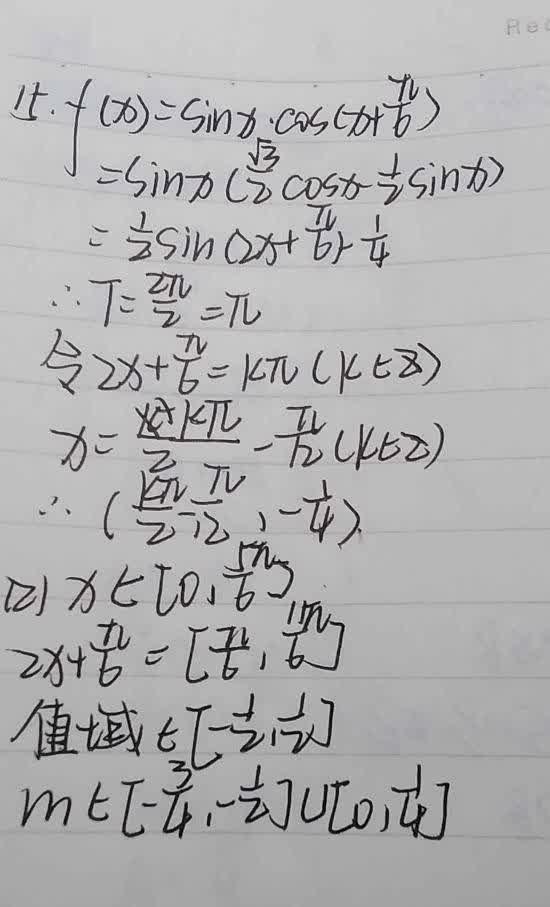 Rec
15. f(x)=sinx·cos(x+π/6)
=sinx(√3/2 cosx-1/2 sinx)
=1/2 sin(2x+π/6)-1/4
∴T=2π/2=π
令2x+π/6=kπ(k∈Z)
x=kπ/2-π/12(k∈Z)
∴(kπ/2-π/12,-1/4)
(2) x∈[0,5π/6]
2x+π/6=[π/6,11π/6]
值域∈[-1/2,1/2]
m∈[-3/4,-1/2]∪[0,1/4]